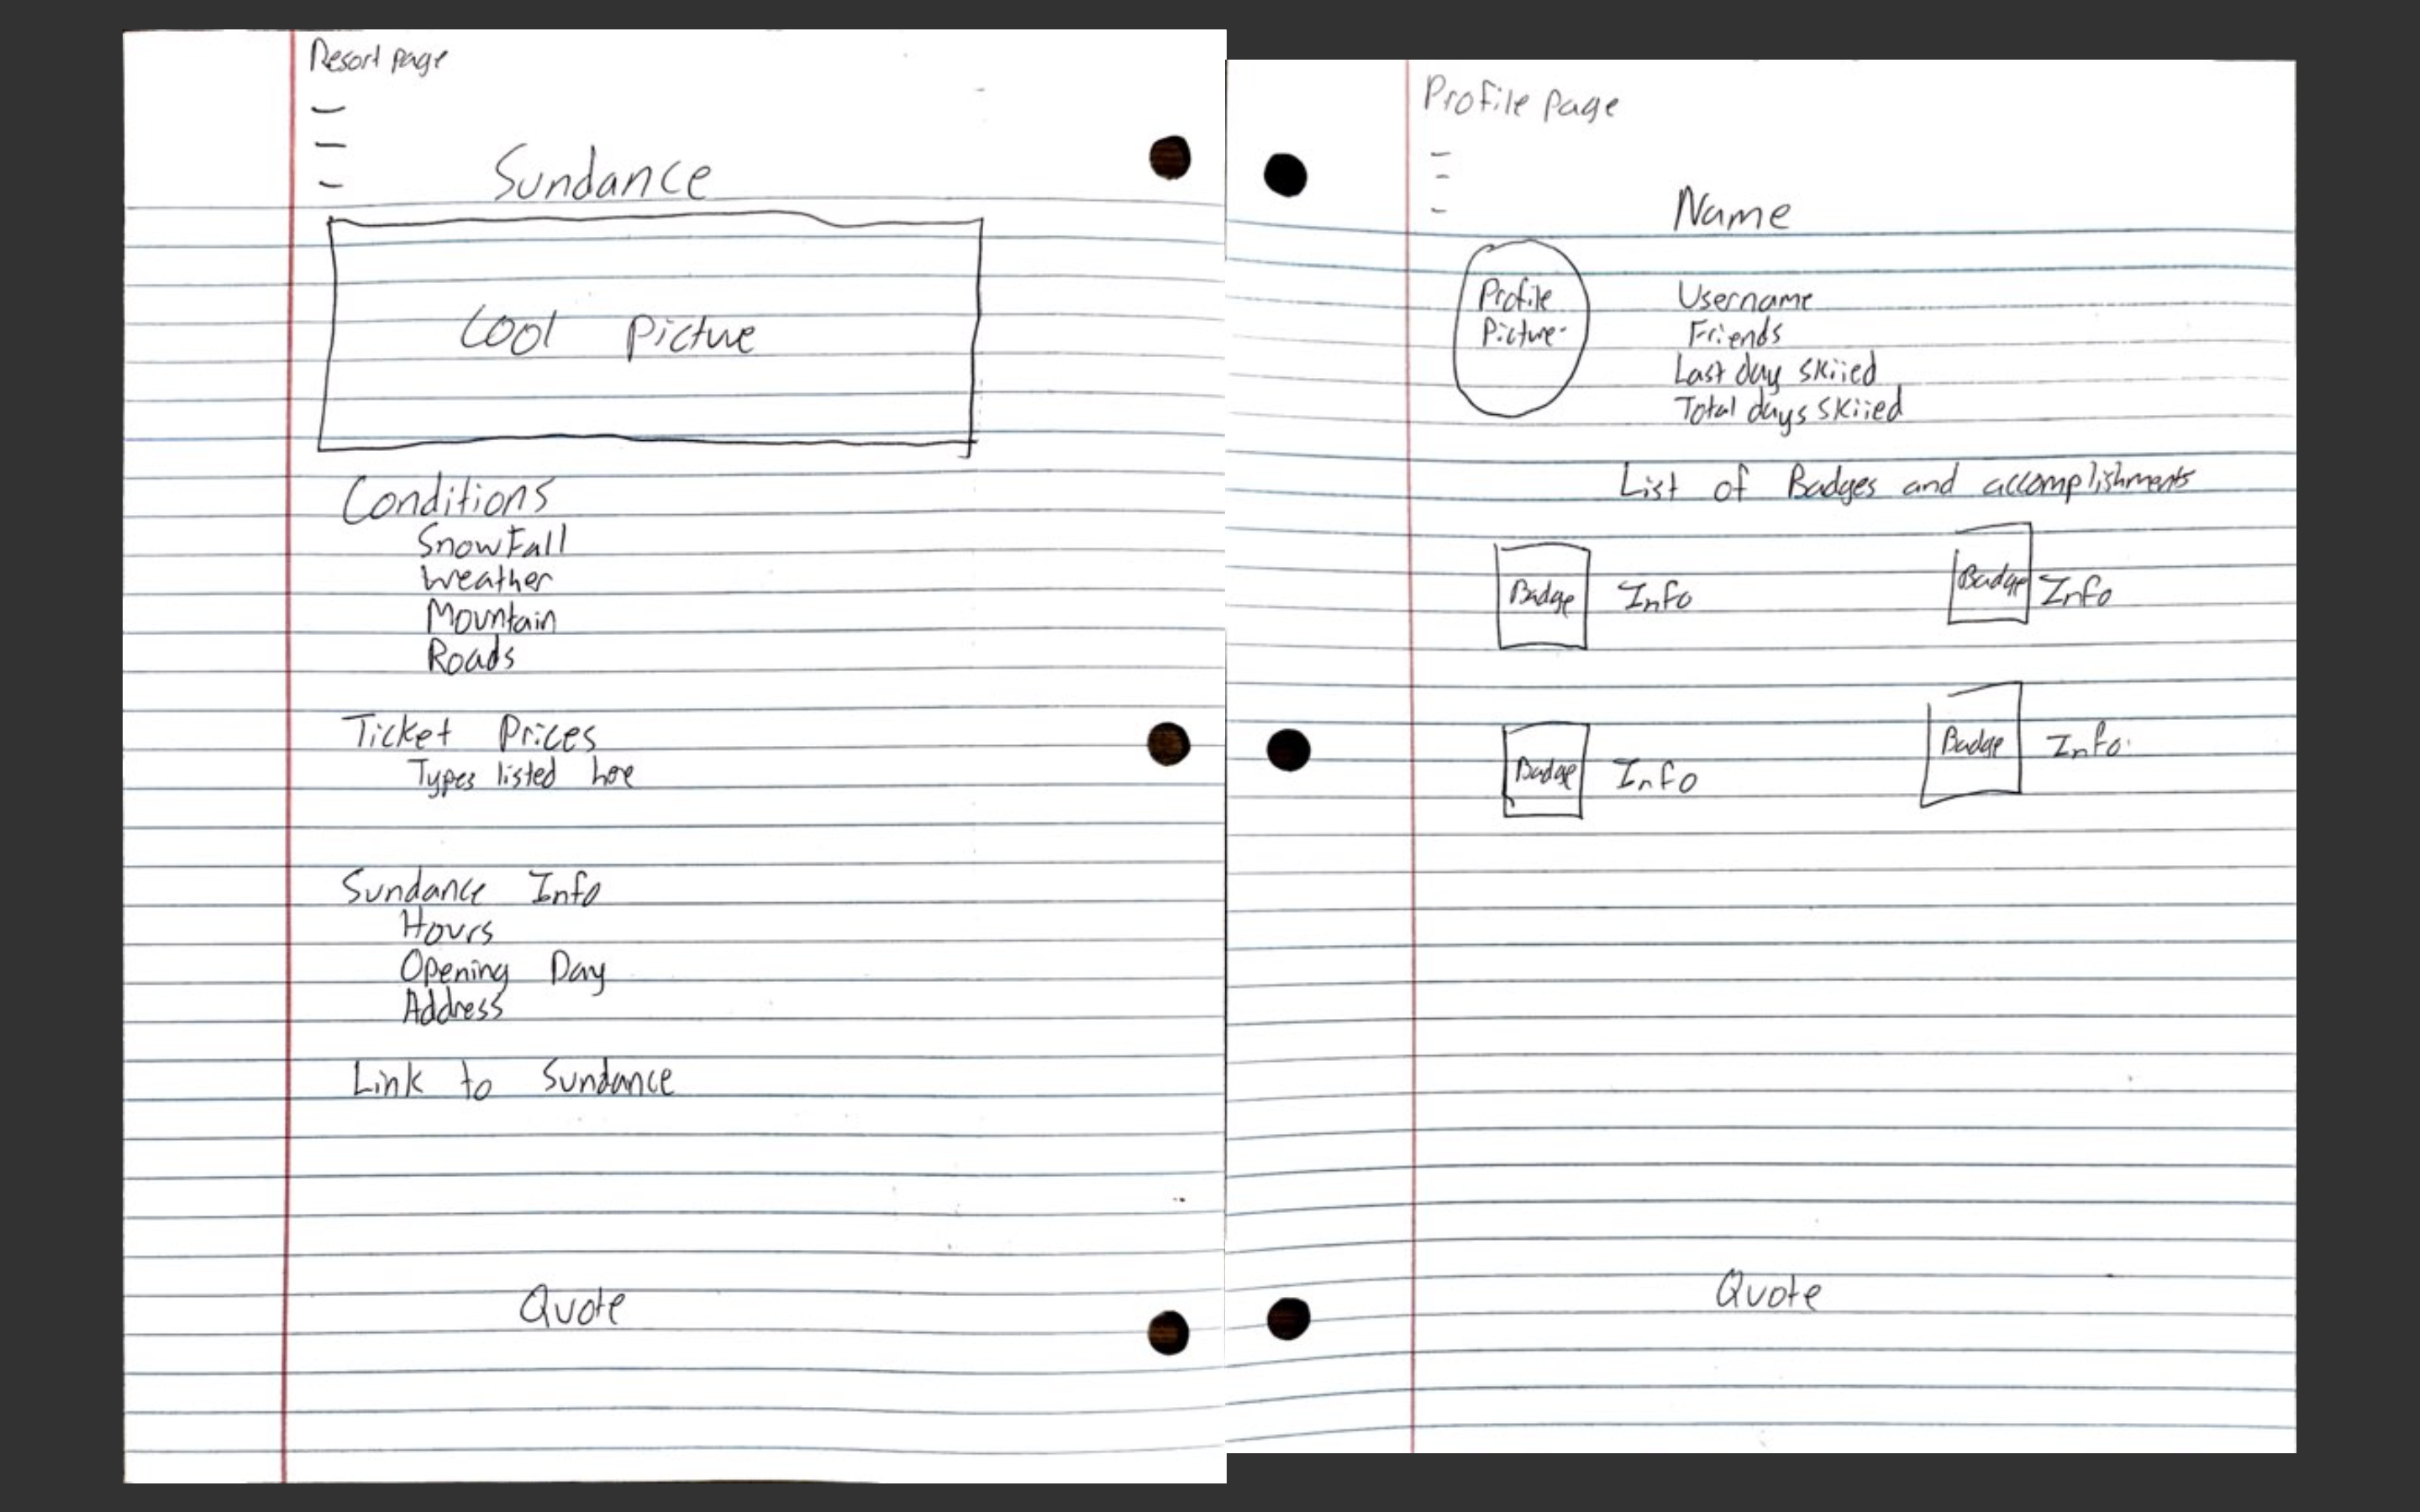 Resort page
Sundance
Cool Picture
Conditions
SnowFall
Weather
Mountain
Roads
Ticket Prices
Types listed here
Sundance Info
Hours
Opening Day
Address
Link to Sundance
Quote
Profile page
Name
Profile
Picture
Username
Friends
Last day skiied
Total days skiied
List of Badges and accomplishments
Badge Info
Badge Info
Badge Info
Badge Info
Quote